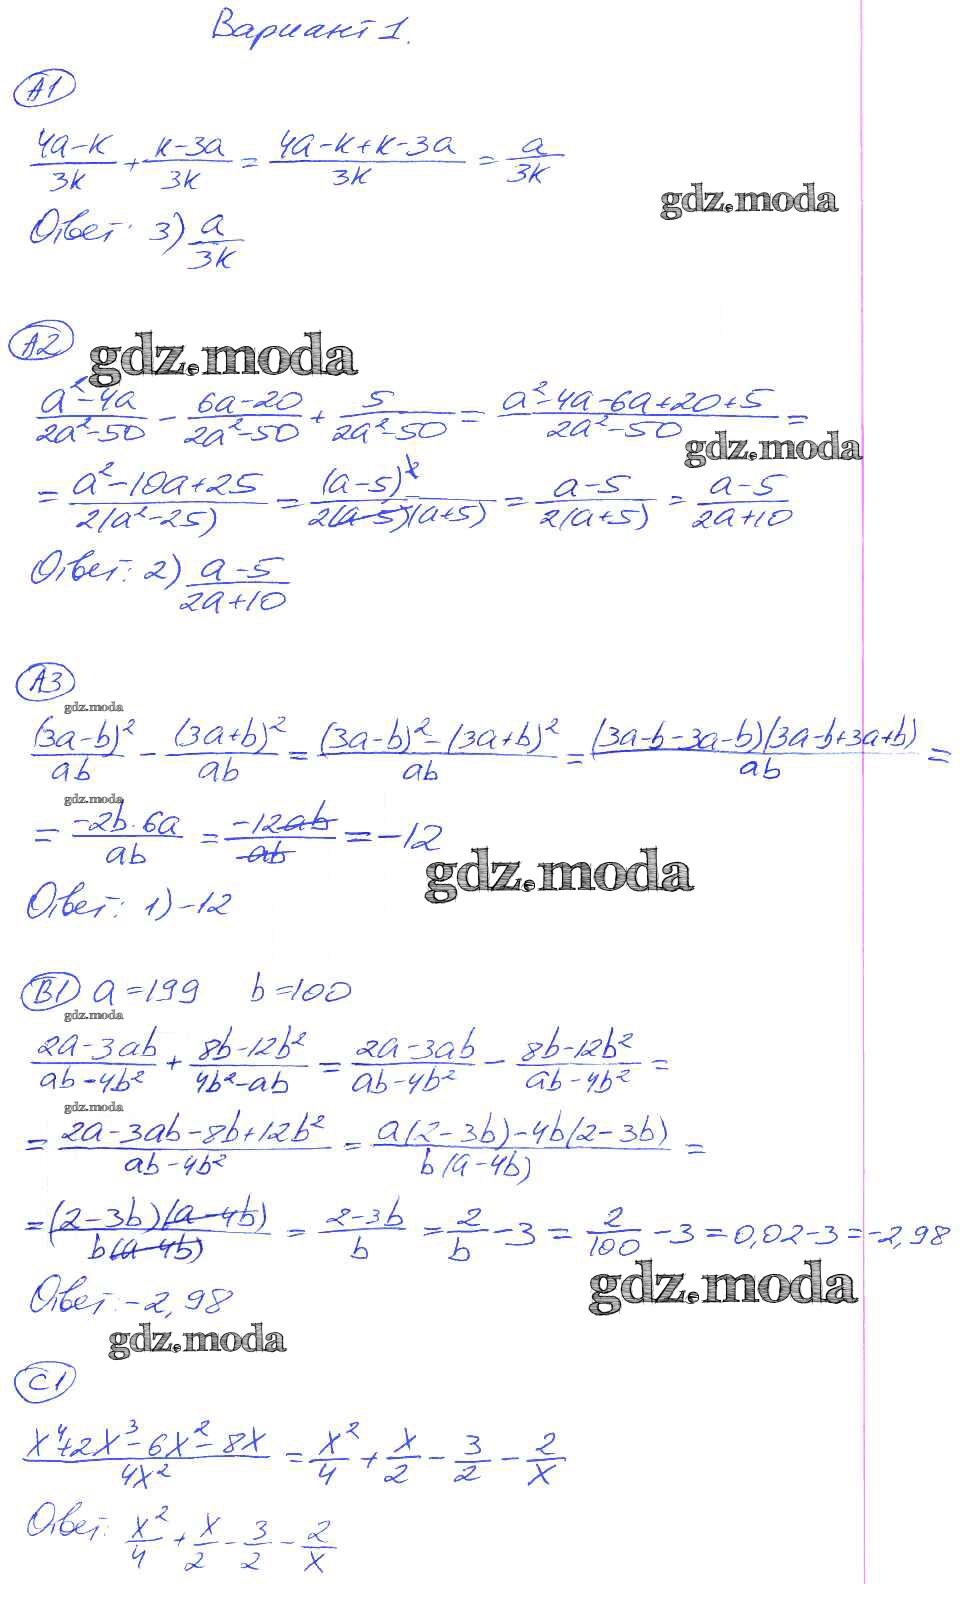 Вариант 1.
А1
(4a-k)/3k + (k-3a)/3k = (4a-k+k-3a)/3k = a/3k
gdz.moda
Ответ: 3) a/3k
А2
gdz.moda
(a²-4a)/(2a²-50) - (6a-20)/(2a²-50) + 5/(2a²-50) = (a²-4a-6a+20+5)/(2a²-50) =
gdz.moda
= (a²-10a+25)/(2(a²-25)) = (a-5)²/(2(a-5)(a+5)) = (a-5)/(2(a+5)) = (a-5)/(2a+10)
Ответ: 2) (a-5)/(2a+10)
А3
gdz.moda
(3a-b)²/ab - (3a+b)²/ab = ((3a-b)²-(3a+b)²)/ab = (3a-b-3a-b)(3a-b+3a+b)/ab =
gdz.moda
= (-2b·6a)/ab = -12ab/ab = -12
gdz.moda
Ответ: 1) -12
В1 a=199 b=100
gdz.moda
(2a-3ab)/(ab-4b²) + (8b-12b²)/(4b²-ab) = (2a-3ab)/(ab-4b²) - (8b-12b²)/(ab-4b²) =
gdz.moda
= (2a-3ab-8b+12b²)/(ab-4b²) = (a(2-3b)-4b(2-3b))/(b(a-4b)) =
= (2-3b)(a-4b)/(b(a-4b)) = (2-3b)/b = 2/b - 3 = 2/100 - 3 = 0,02-3 = -2,98
gdz.moda
Ответ: -2,98
gdz.moda
С1
(x⁴+2x³-6x²-8x)/4x² = x²/4 + x/2 - 3/2 - 2/x
Ответ: x²/4 + x/2 - 3/2 - 2/x